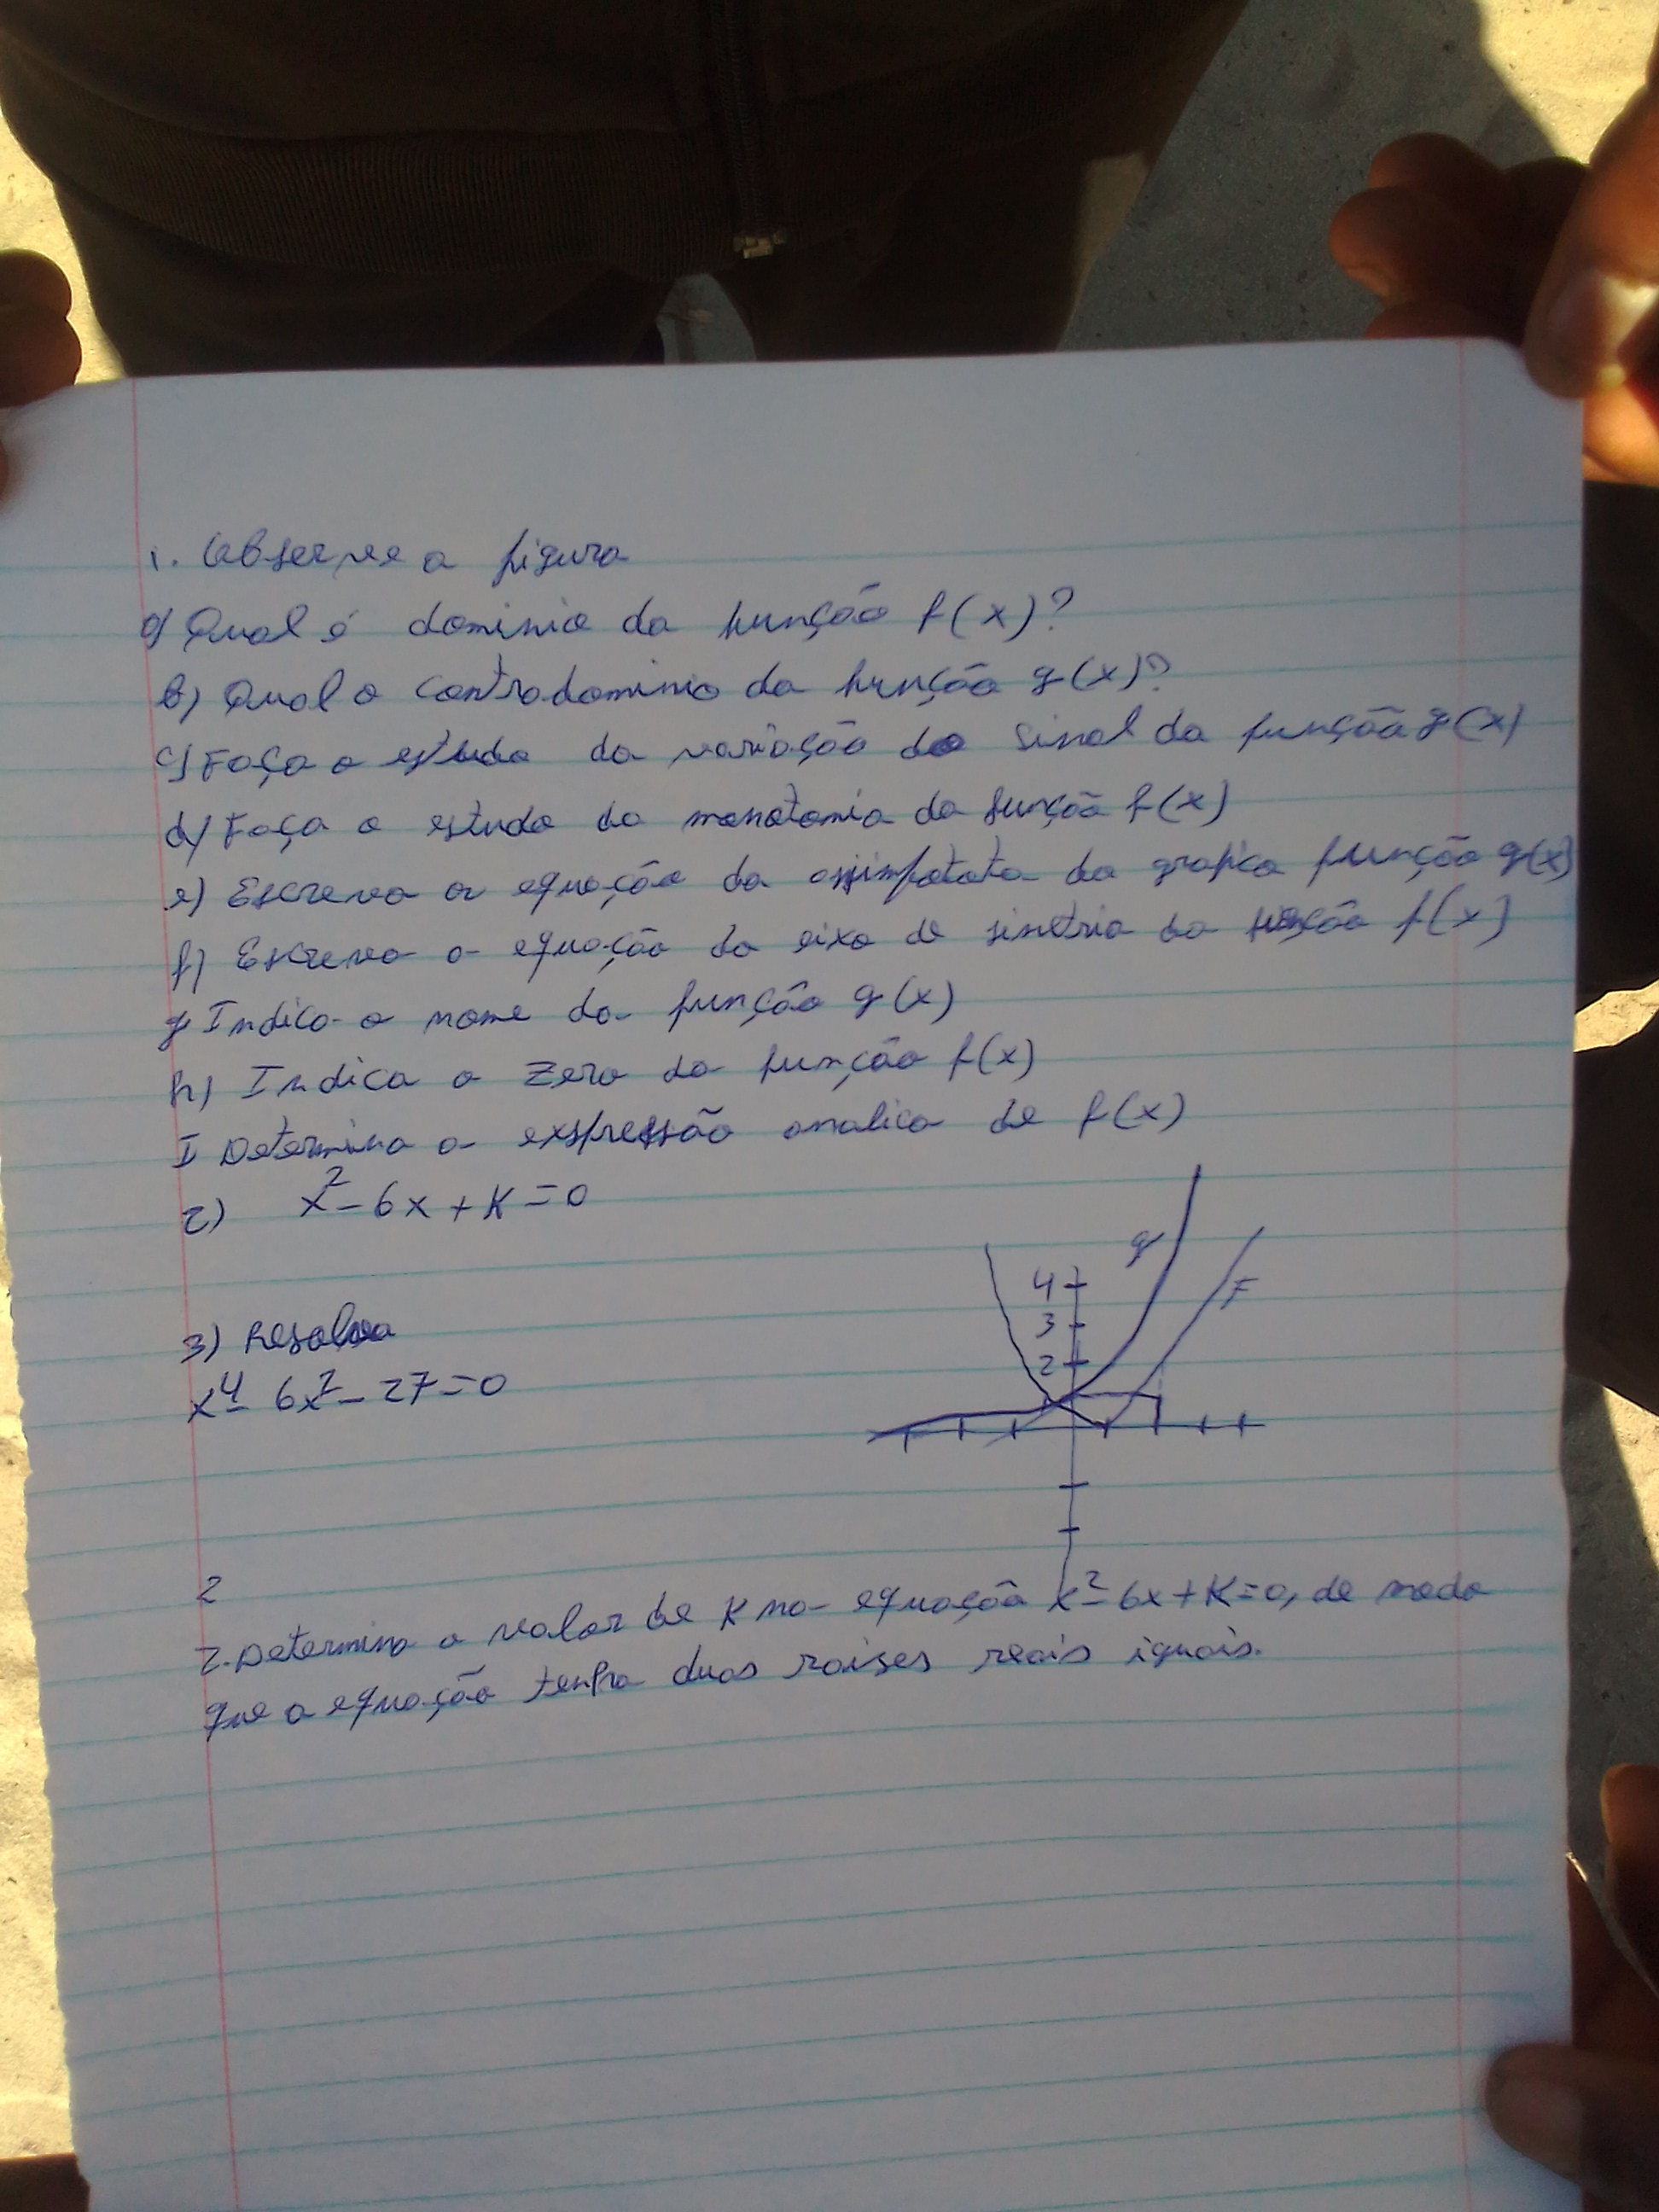 1. Observe a figura
a) Qual é dominio da função f(x)?
b) Qual o contradominio da função g(x)?
c) Faça o estudo da variação do sinal da função g(x)
d) Faça o estudo da monotomia da função f(x)
e) Escreva a equação da da grafico função g(x)
f) Escreva a equação do eixo de simetria da função f(x)
g Indica o nome da função g(x)
h) Indica o zero da função f(x)
I Determina a expressão analica de f(x)
2) x²-6x+K=0
g
F
4
3
2
3) Resolva
x⁴-6x²-27=0
2
2. Determina o valor de K na equação x²-6x+K=0, de modo
que a equação tenha duas raises reais iguais.